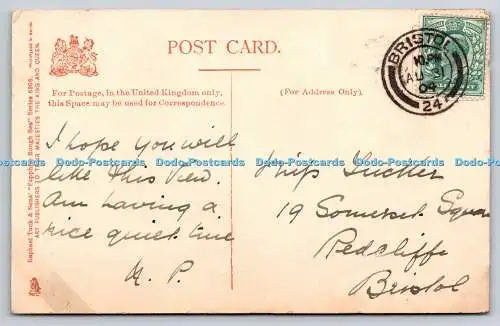 POST CARD.
For Postage, in the United Kingdom only,
this Space may be used for Correspondence.
(For Address Only).
BRISTOL
10 PM
AU 31
04
24
Raphael Tuck & Sons' "Sapphire Rough Sea" Series 6305.
ART PUBLISHERS TO THEIR MAJESTIES THE KING AND QUEEN.
I hope you will
like this view.
Am having a
nice quiet time
Miss Tucker
19 Somerset Square
Redcliffe
Bristol
Dodo-Postcards Dodo-Postcards Dodo-Postcards Dodo-Postcards Dodo-Postcards Dodo-Postcards